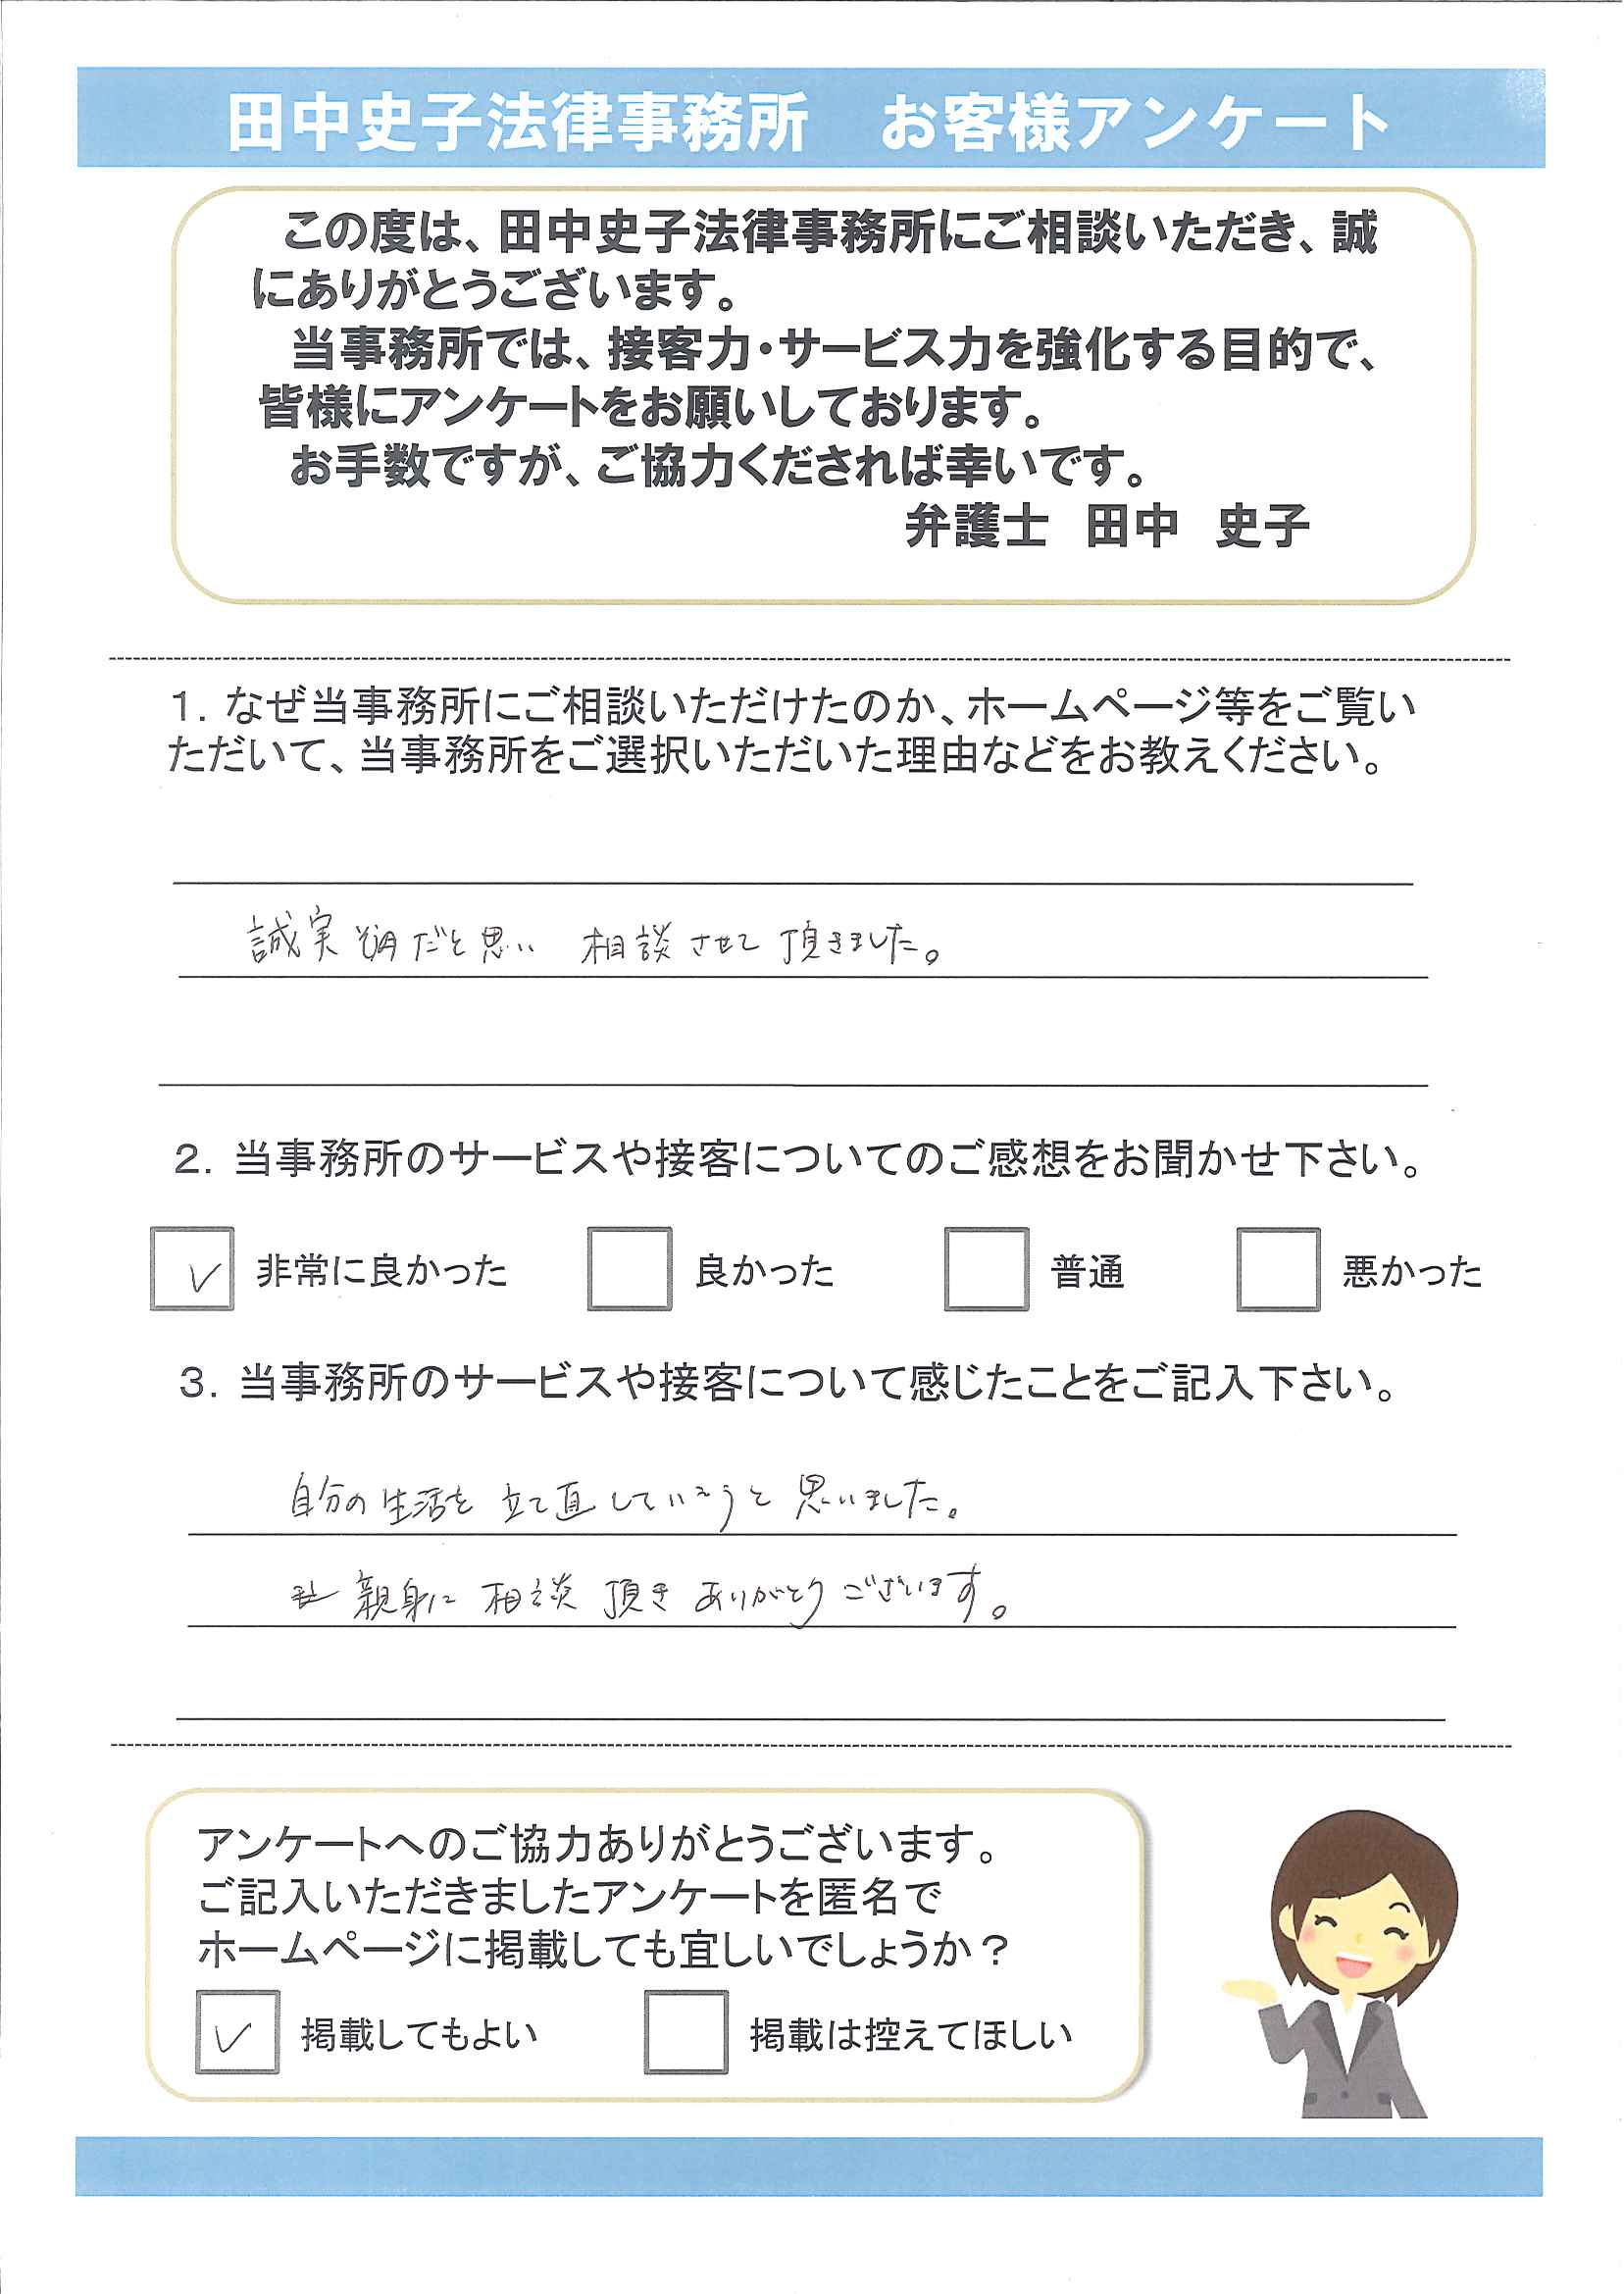 田中史子法律事務所 お客様アンケート
この度は、田中史子法律事務所にご相談いただき、誠
にありがとうございます。
当事務所では、接客力・サービス力を強化する目的で、
皆様にアンケートをお願いしております。
お手数ですが、ご協力くだされば幸いです。
弁護士 田中 史子
1. なぜ当事務所にご相談いただけたのか、ホームページ等をご覧い
ただいて、当事務所をご選択いただいた理由などをお教えください。
誠実 だと思い 相談させて頂きました。
2. 当事務所のサービスや接客についてのご感想をお聞かせ下さい。
✓ 非常に良かった 良かった 普通 悪かった
3. 当事務所のサービスや接客について感じたことをご記入下さい。
自分の生活を立て直していこうと思いました。
親身に相談頂きありがとうございます。
アンケートへのご協力ありがとうございます。
ご記入いただきましたアンケートを匿名で
ホームページに掲載しても宜しいでしょうか？
✓ 掲載してもよい 掲載は控えてほしい